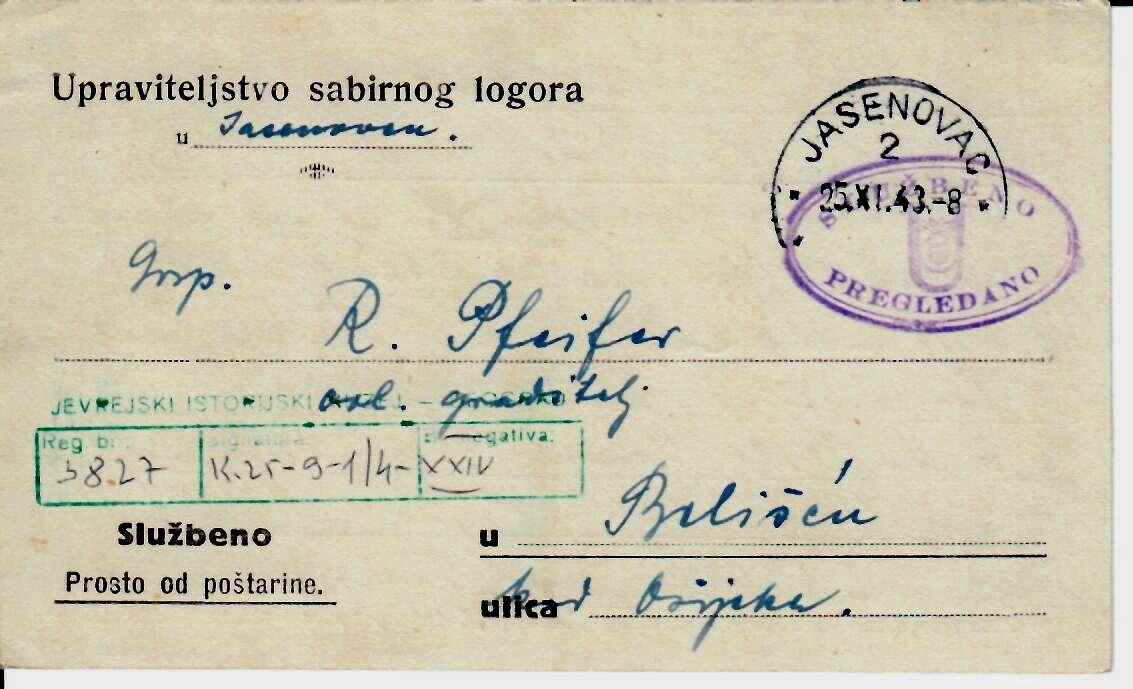 Upraviteljstvo sabirnog logora
u Jasenovcu.
JASENOVAC
2
* 25.XI.43.-8 *
SLUŽBENO
PREGLEDANO
Gosp.
R. Pfeifer
ovl. graditelj
JEVREJSKI ISTORIJSKI MUZEJ –
Reg. br.: signatura: Br. negativa:
5827 K.25-9-1/4- XXIV
Službeno
Prosto od poštarine.
u Belišću
ulica kod Osijeka.